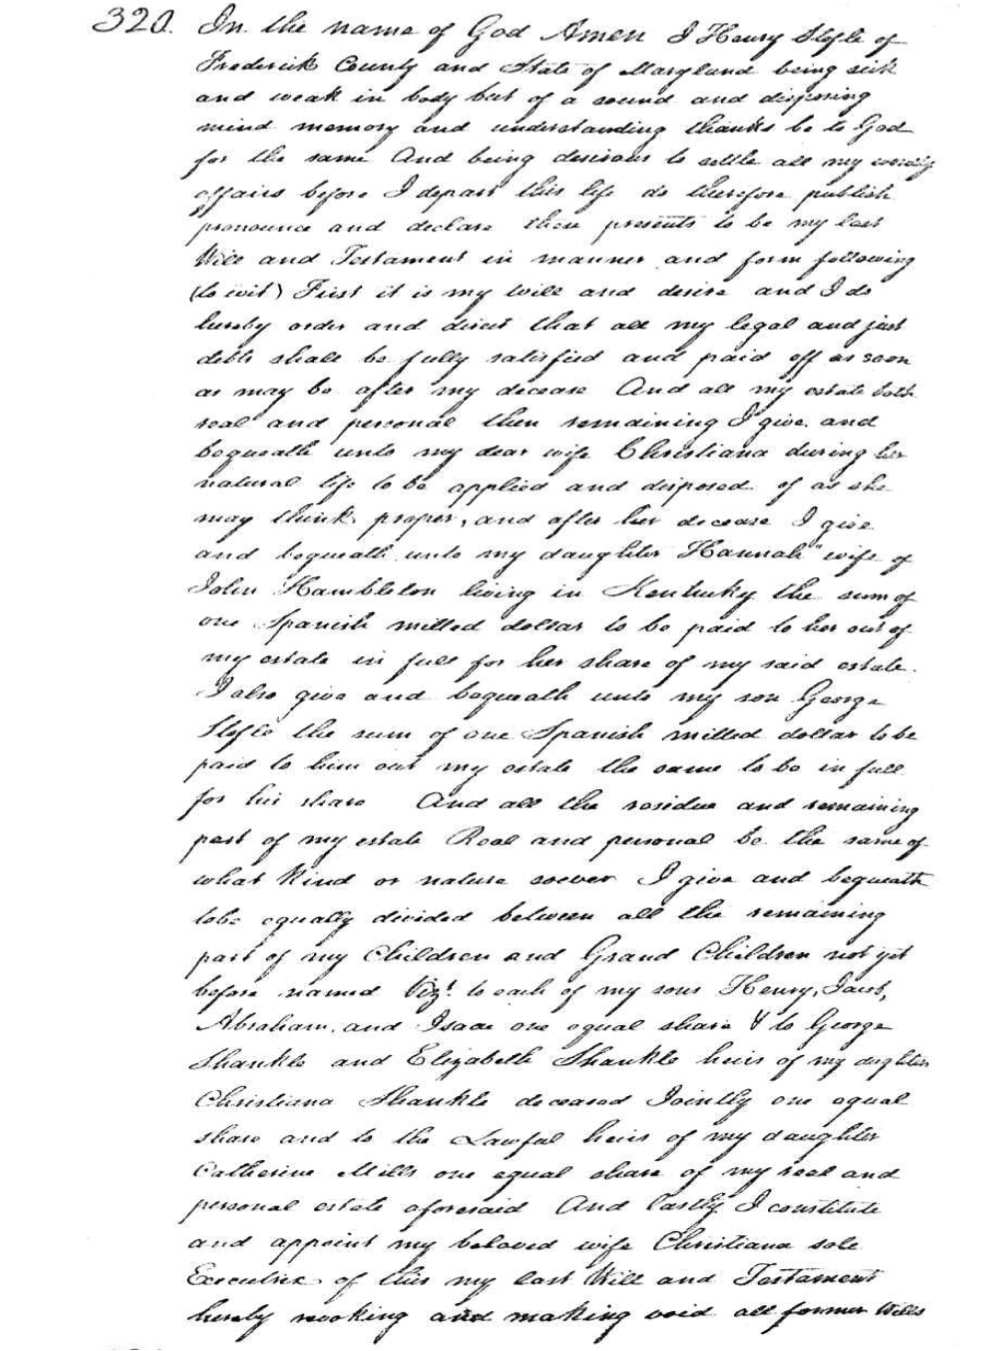 320. In the name of God Amen I Henry Stefle of
Frederick County and State of Maryland being sick
and weak in body but of a sound and disposing
mind memory and understanding thanks be to God
for the same And being desirous to settle all my wordly
affairs before I depart this life do therefore publish
pronounce and declare these presents to be my last
Will and Testament in manner and form following
(to wit) First it is my will and desire and I do
hereby order and direct that all my legal and just
debts shall be fully satisfied and paid off as soon
as may be after my decease And all my estate both
real and personal then remaining I give and
bequeath unto my dear wife Christiana during her
natural life to be applied and disposed of as she
may think proper, and after her decease I give
and bequeath unto my daughter Hannah" wife of
John Hambleton living in Kentucky the sum of
one Spanish milled dollar to be paid to her out of
my estate in full for her share of my said estate.
I also give and bequeath unto my son George
Stefle the sum of one Spanish milled dollar to be
paid to him out my estate the same to be in full
for his share And all the residue and remaining
part of my estate Real and personal be the same of
what kind or nature soever I give and bequeath
tobe equally divided between all the remaining
part of my Children and Grand Children not yet
before named Vizt. to each of my sons Henry, Jacob,
Abraham, and Isaac one equal share & to George
Shankle and Elizabeth Shankle heirs of my daghter
Christiana Shankle deceased Jointly one equal
share and to the Lawful heirs of my daughter
Catherine Mills one equal share of my real and
personal estate aforesaid And lastly I constitute
and appoint my beloved wife Christiana sole
Executrix of this my last Will and Testament
hereby revoking and making void all former Wills